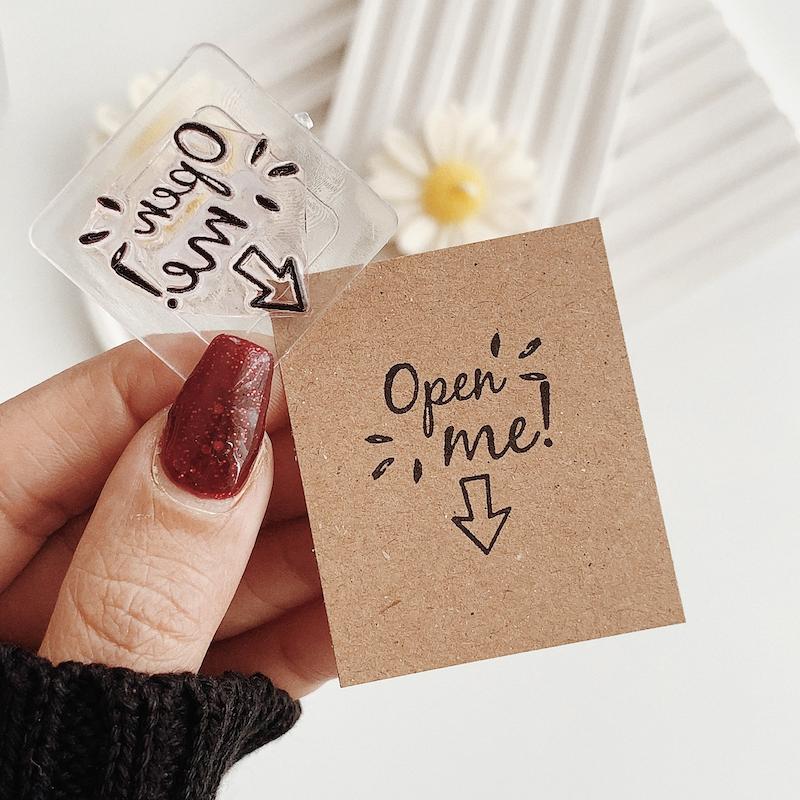 Open
me!
Open
me!